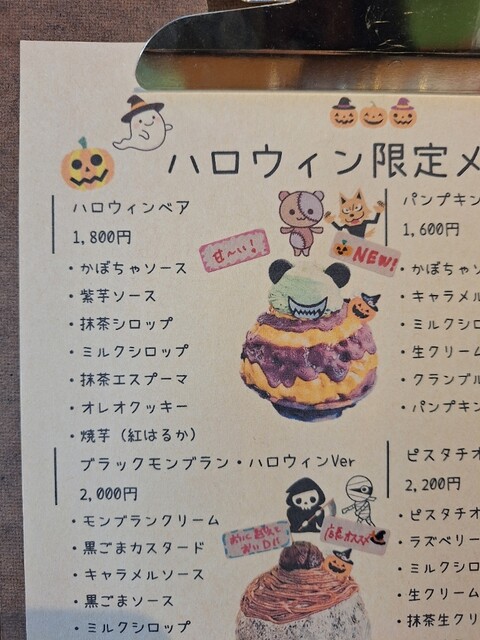 ハロウィン限定メ
ハロウィンベア
1,800円
甘〜い!
NEW!
・かぼちゃソース
・紫芋ソース
・抹茶シロップ
・ミルクシロップ
・抹茶エスプーマ
・オレオクッキー
・焼芋（紅はるか）
ブラックモンブラン・ハロウィンVer
2,000円
店長オススメ
・モンブランクリーム
・黒ごまカスタード
・キャラメルソース
・黒ごまソース
・ミルクシロップ
パンプキン
1,600円
・かぼちゃソ
・キャラメル
・ミルクシロ
・生クリーム
・クランブル
・パンプキン
ピスタチオ
2,200円
・ピスタチオ
・ラズベリー
・ミルクシロ
・生クリーム
・抹茶生クリ